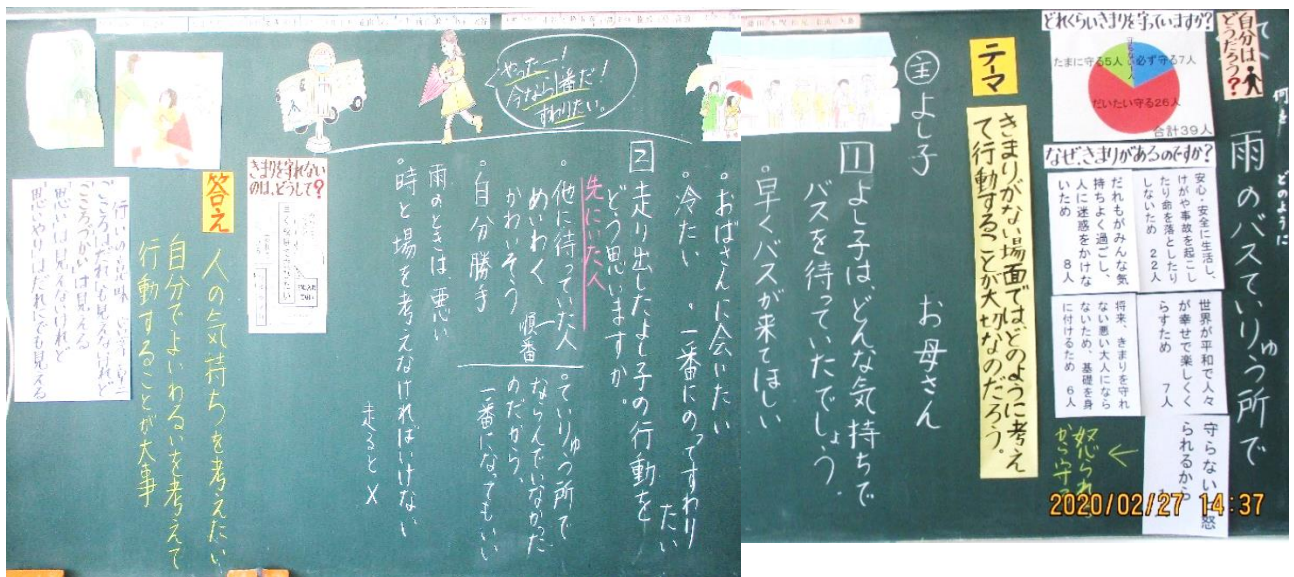 何を
どのように
雨のバスていりゅう所で
自分は
どうだろう？
どれくらいきまりを守っていますか？
必ず守る7人
たまに守る5人
だいたい守る26人
合計39人
なぜ、きまりがあるのですか？
安心・安全に生活し、
けがや事故を起こし
たり命を落としたり
しないため　22人
だれもがみんな気
持ちよく過ごし、
人に迷惑をかけな
いため　8人
世界が平和で人々
が幸せで楽しくく
らすため　7人
将来、きまりを守れ
ない悪い大人になら
ないため、基礎を身
に付けるため　6人
守らないと怒
られるから
怒られ
から守
テーマ
きまりがない場面では、どのように考え
て行動することが大切なのだろう。
主 よし子　お母さん
1 よし子は、どんな気持ちで
バスを待っていたでしょう。
・早くバスが来てほしい
・おばさんに会いたい
・冷たい　・一番にのってすわり
たい
やったー！
今なら1番だ！
すわりたい。
2 走り出したよし子の行動を
どう思いますか。
先にいた人
・他に待っていた人
めいわく　順番
かわいそう
・自分勝手
・ていりゅう所で
ならんでいなかった
のだから、
一番になってもいい
雨のときは、悪い
・時と場を考えなければいけない
走ると×
きまりを守れない
のは、どうして？
答え
人の気持ちを考えたい。
自分でよいわるいを考えて
行動することが大事
「行いの意味」
こころはだれにも見えないけれど
こころづかいは見える
思いは見えないけれど
思いやりはだれにでも見える
2020/02/27 14:37